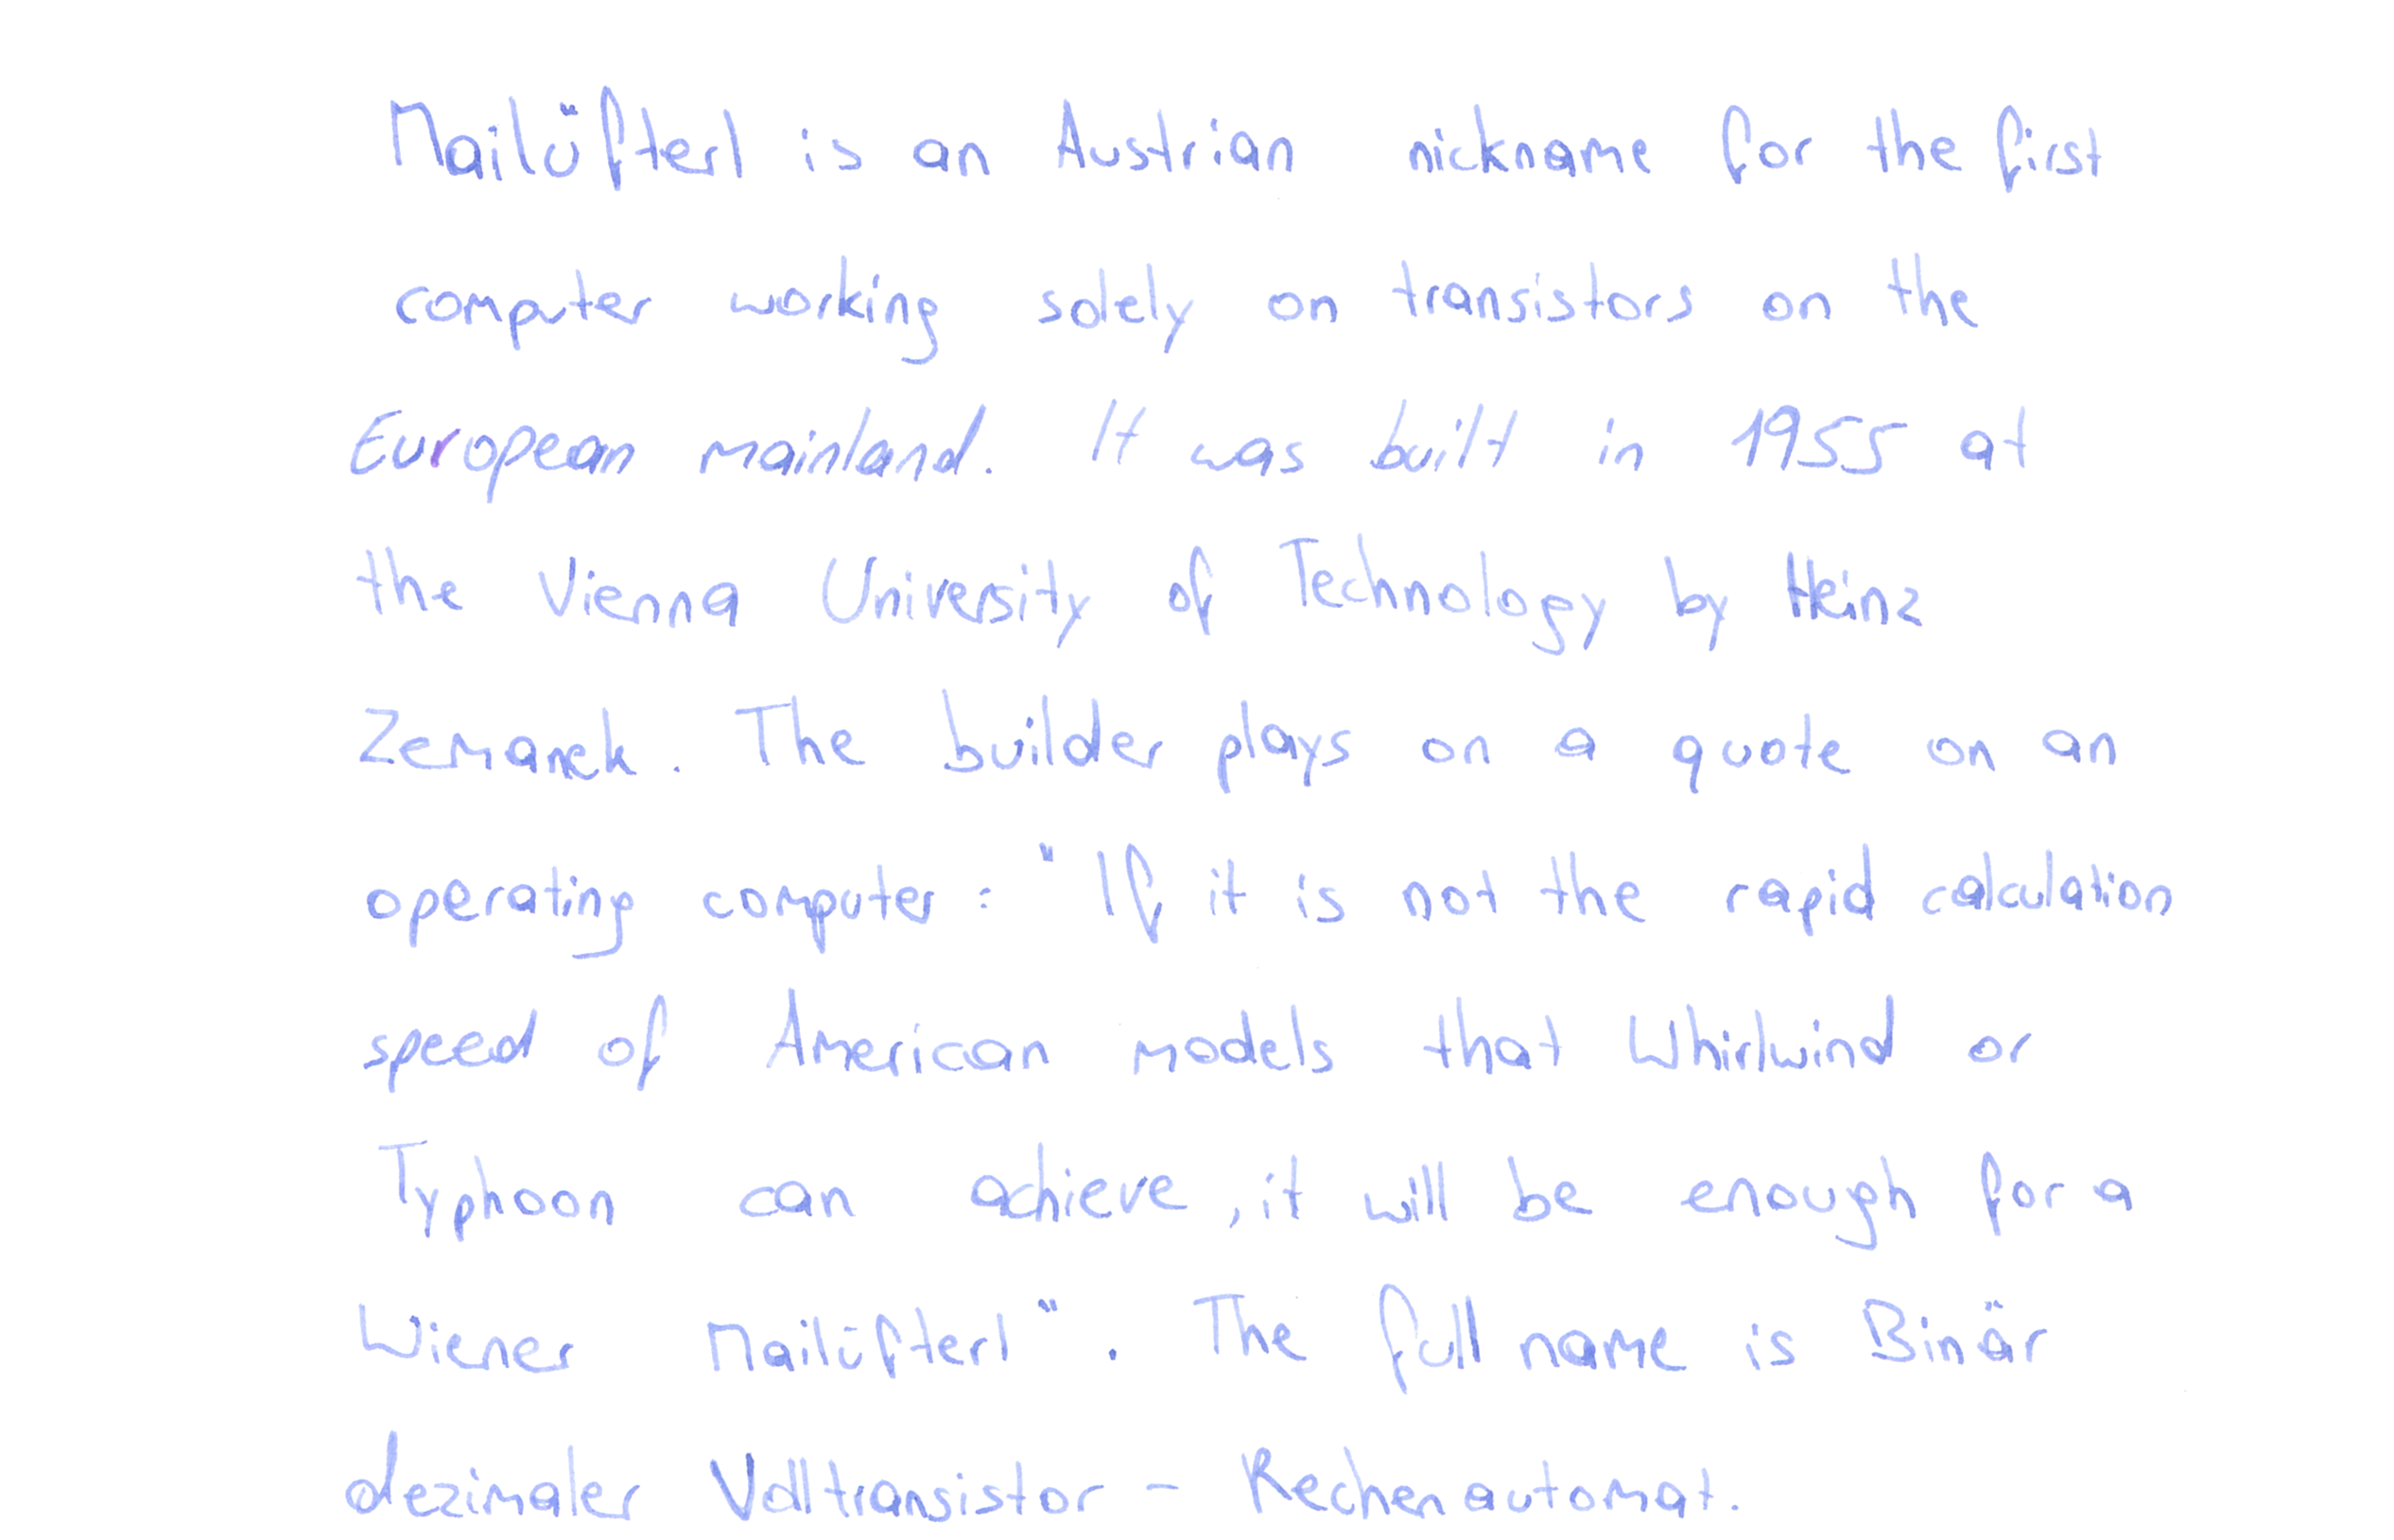 Mailüfterl is an Austrian nickname for the first
computer working solely on transistors on the
European mainland. It was built in 1955 at
the Vienna University of Technology by Heinz
Zemanek. The builder plays on a quote on an
operating computer: "If it is not the rapid calculation
speed of American models that Whirlwind or
Typhoon can achieve, it will be enough for a
Wiener Mailüfterl". The full name is Binär
dezimaler Volltransistor - Rechenautomat.